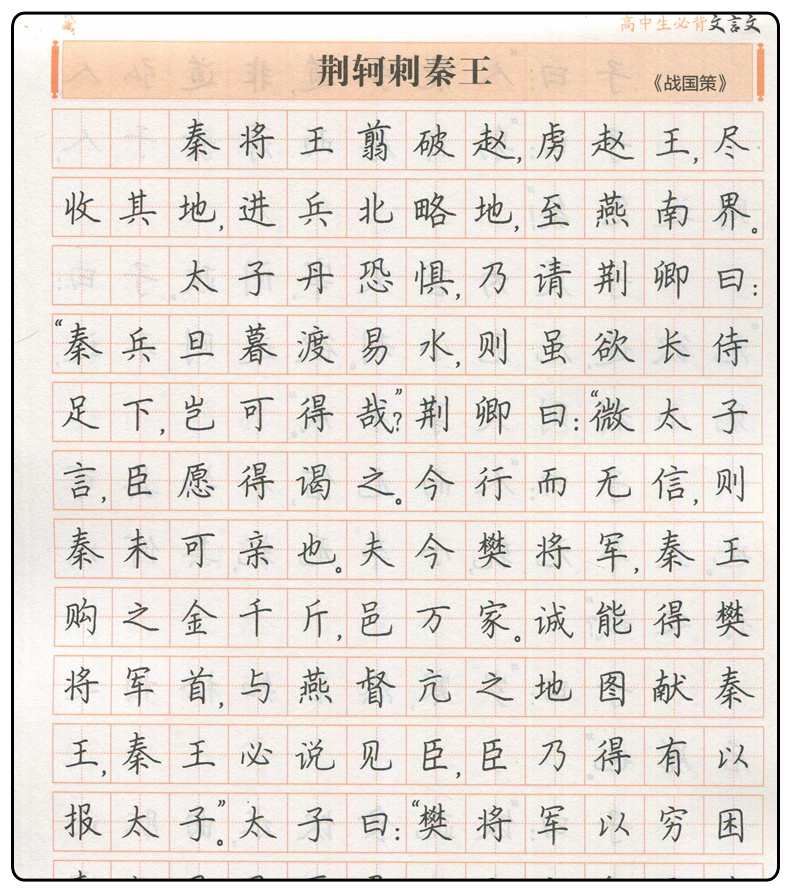 高中生必背文言文
荆轲刺秦王
《战国策》
秦将王翦破赵,虏赵王,尽
收其地,进兵北略地,至燕南界。
太子丹恐惧,乃请荆卿曰:
“秦兵旦暮渡易水,则虽欲长侍
足下,岂可得哉?”荆卿曰:“微太子
言,臣愿得谒之。今行而无信,则
秦未可亲也。夫今樊将军,秦王
购之金千斤,邑万家。诚能得樊
将军首,与燕督亢之地图献秦
王,秦王必说见臣,臣乃得有以
报太子。”太子曰:“樊将军以穷困